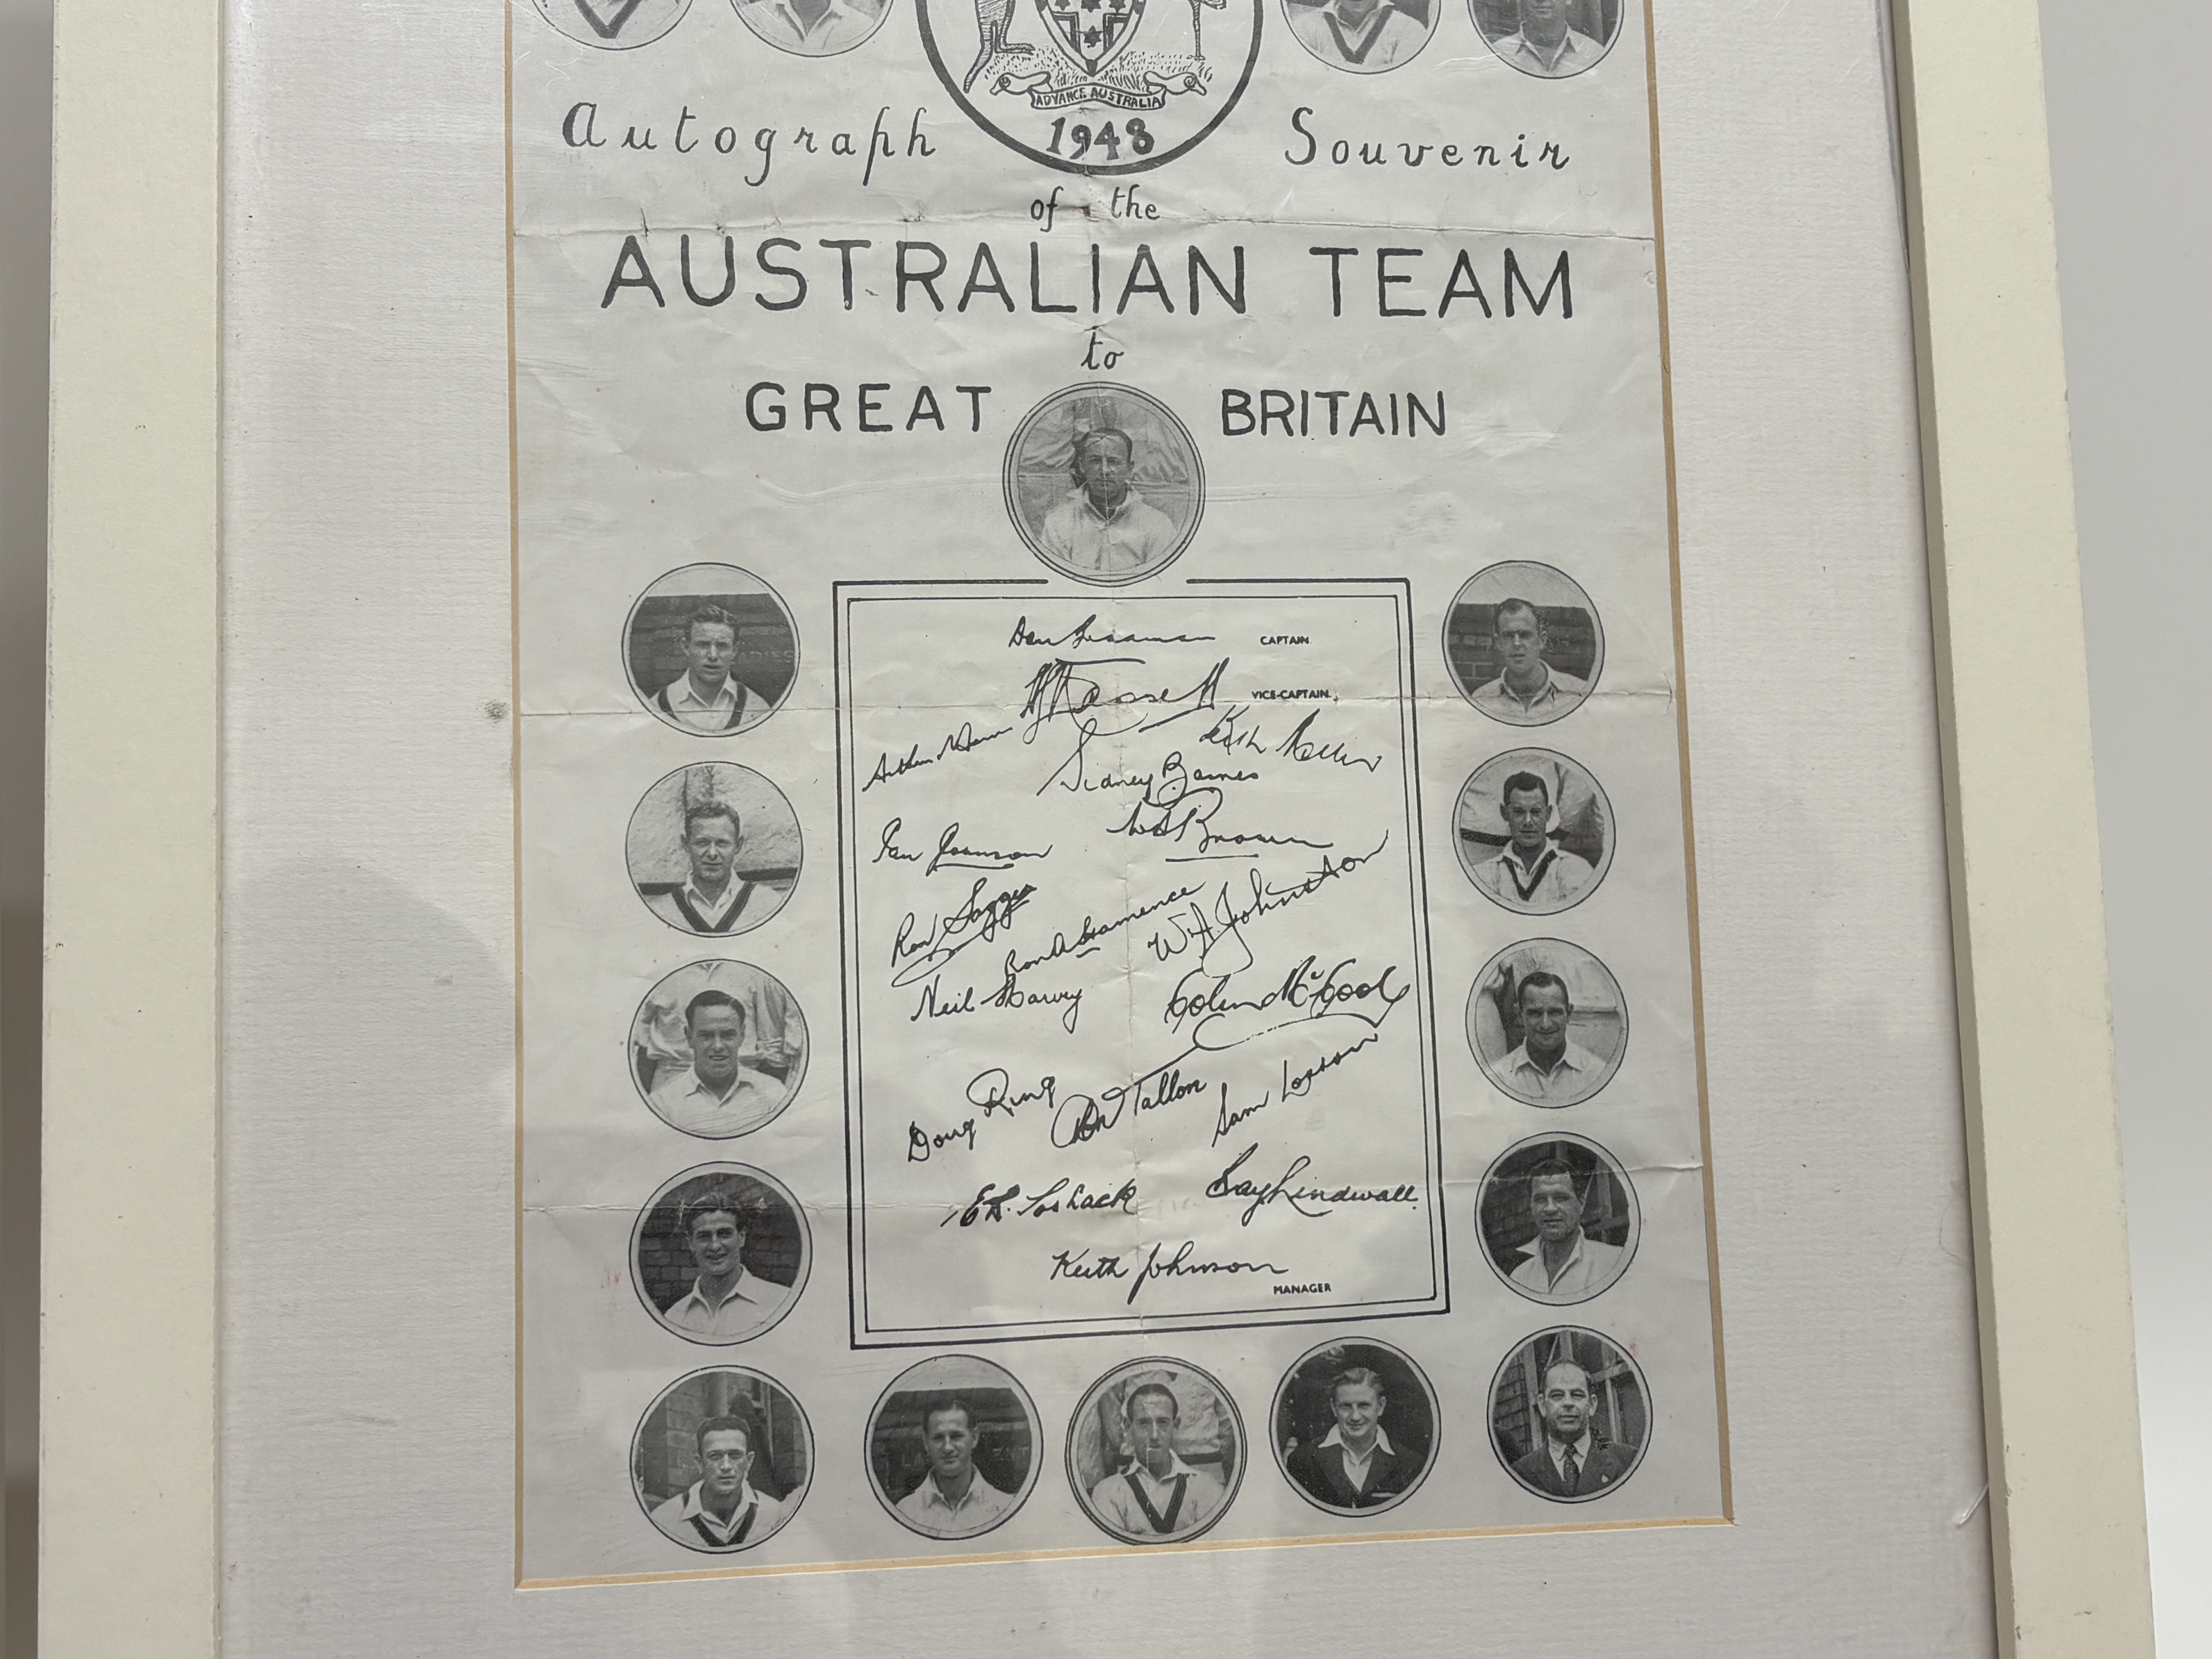 ADVANCE AUSTRALIA
1948
Autograph Souvenir
of the
AUSTRALIAN TEAM
to
GREAT BRITAIN
Don Bradman CAPTAIN.
A L Hassett VICE-CAPTAIN.
Arthur Morris
Keith Miller
Sidney Barnes
Ian Johnson
W A Brown
Ron Saggers
Ron A Hamence
W. A. Johnston
Neil Harvey
Colin McCool
Doug Ring
Don Tallon
Sam Loxton
E R. Toshack
Ray Lindwall.
Keith Johnson
MANAGER